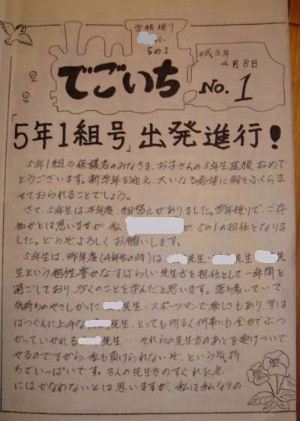 学級便り
小
5の1
平成3年
4月8日
でごいち
No.1
「5年1組号」出発進行！
5年1組の保護者のみなさま、お子さんの5年生進級おめで
とうございます。新学年を迎え、大いなる希望に胸をふくらま
せておられることでしょう。
さて、5年生は本年度、組替えがありました。学年便りで、ご存
知かとは思いますが、私、が、5の1の担任となりまし
た。どうぞよろしくお願いします。
5年生は、昨年度(4年生の時)は先生・先生・先
生という個性豊かなすばらしい先生方を担任として一年間を
過ごしており、多くのことを学んだと思います。落ち着いていて、
気持ちのやさしかった先生、スポーツマンで楽しくもあり、字は
ばつぐんに上手な先生、とっても明るく何事にも全力でぶつ
かっていかれる先生…それらの先生方のあとを受けついで
やるのですから、私も負けられないぞ、という気持
ちでいっぱいです。3人の先生方のすぐれた点
にはかなわないとは思いますが、私は私なりの